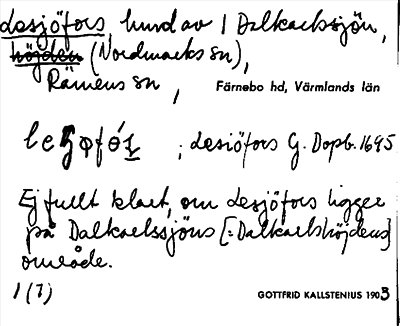 Lesjöfors, hund av 1 Dalkarlssjön,
höjden (Nordmarks sn),
Rämens sn,
Färnebo hd, Värmlands län
; Lesiöfors G. Dopb. 1695
Ej fullt klart, om Lesjöfors ligger
på Dalkarlssjöns [: Dalkarlshöjdens]
område.
1 (7)
GOTTFRID KALLSTENIUS 1903